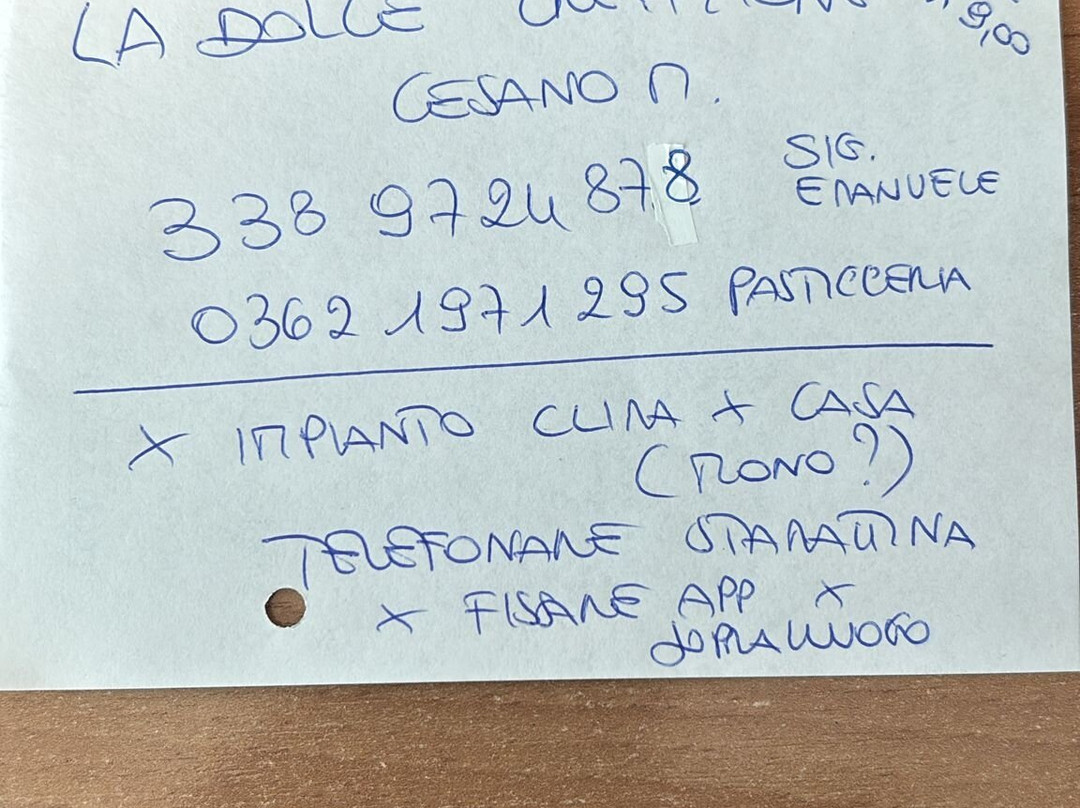 LA DOLCE
9,00
CESANO M.
338 9724 878 SIG. EMANUELE
0362 1971 295 PASTICCERIA
X IMPIANTO CLIMA X CASA
(MONO?)
TELEFONARE STAMATTINA
X FISSARE APP X
SOPRALLUOGO